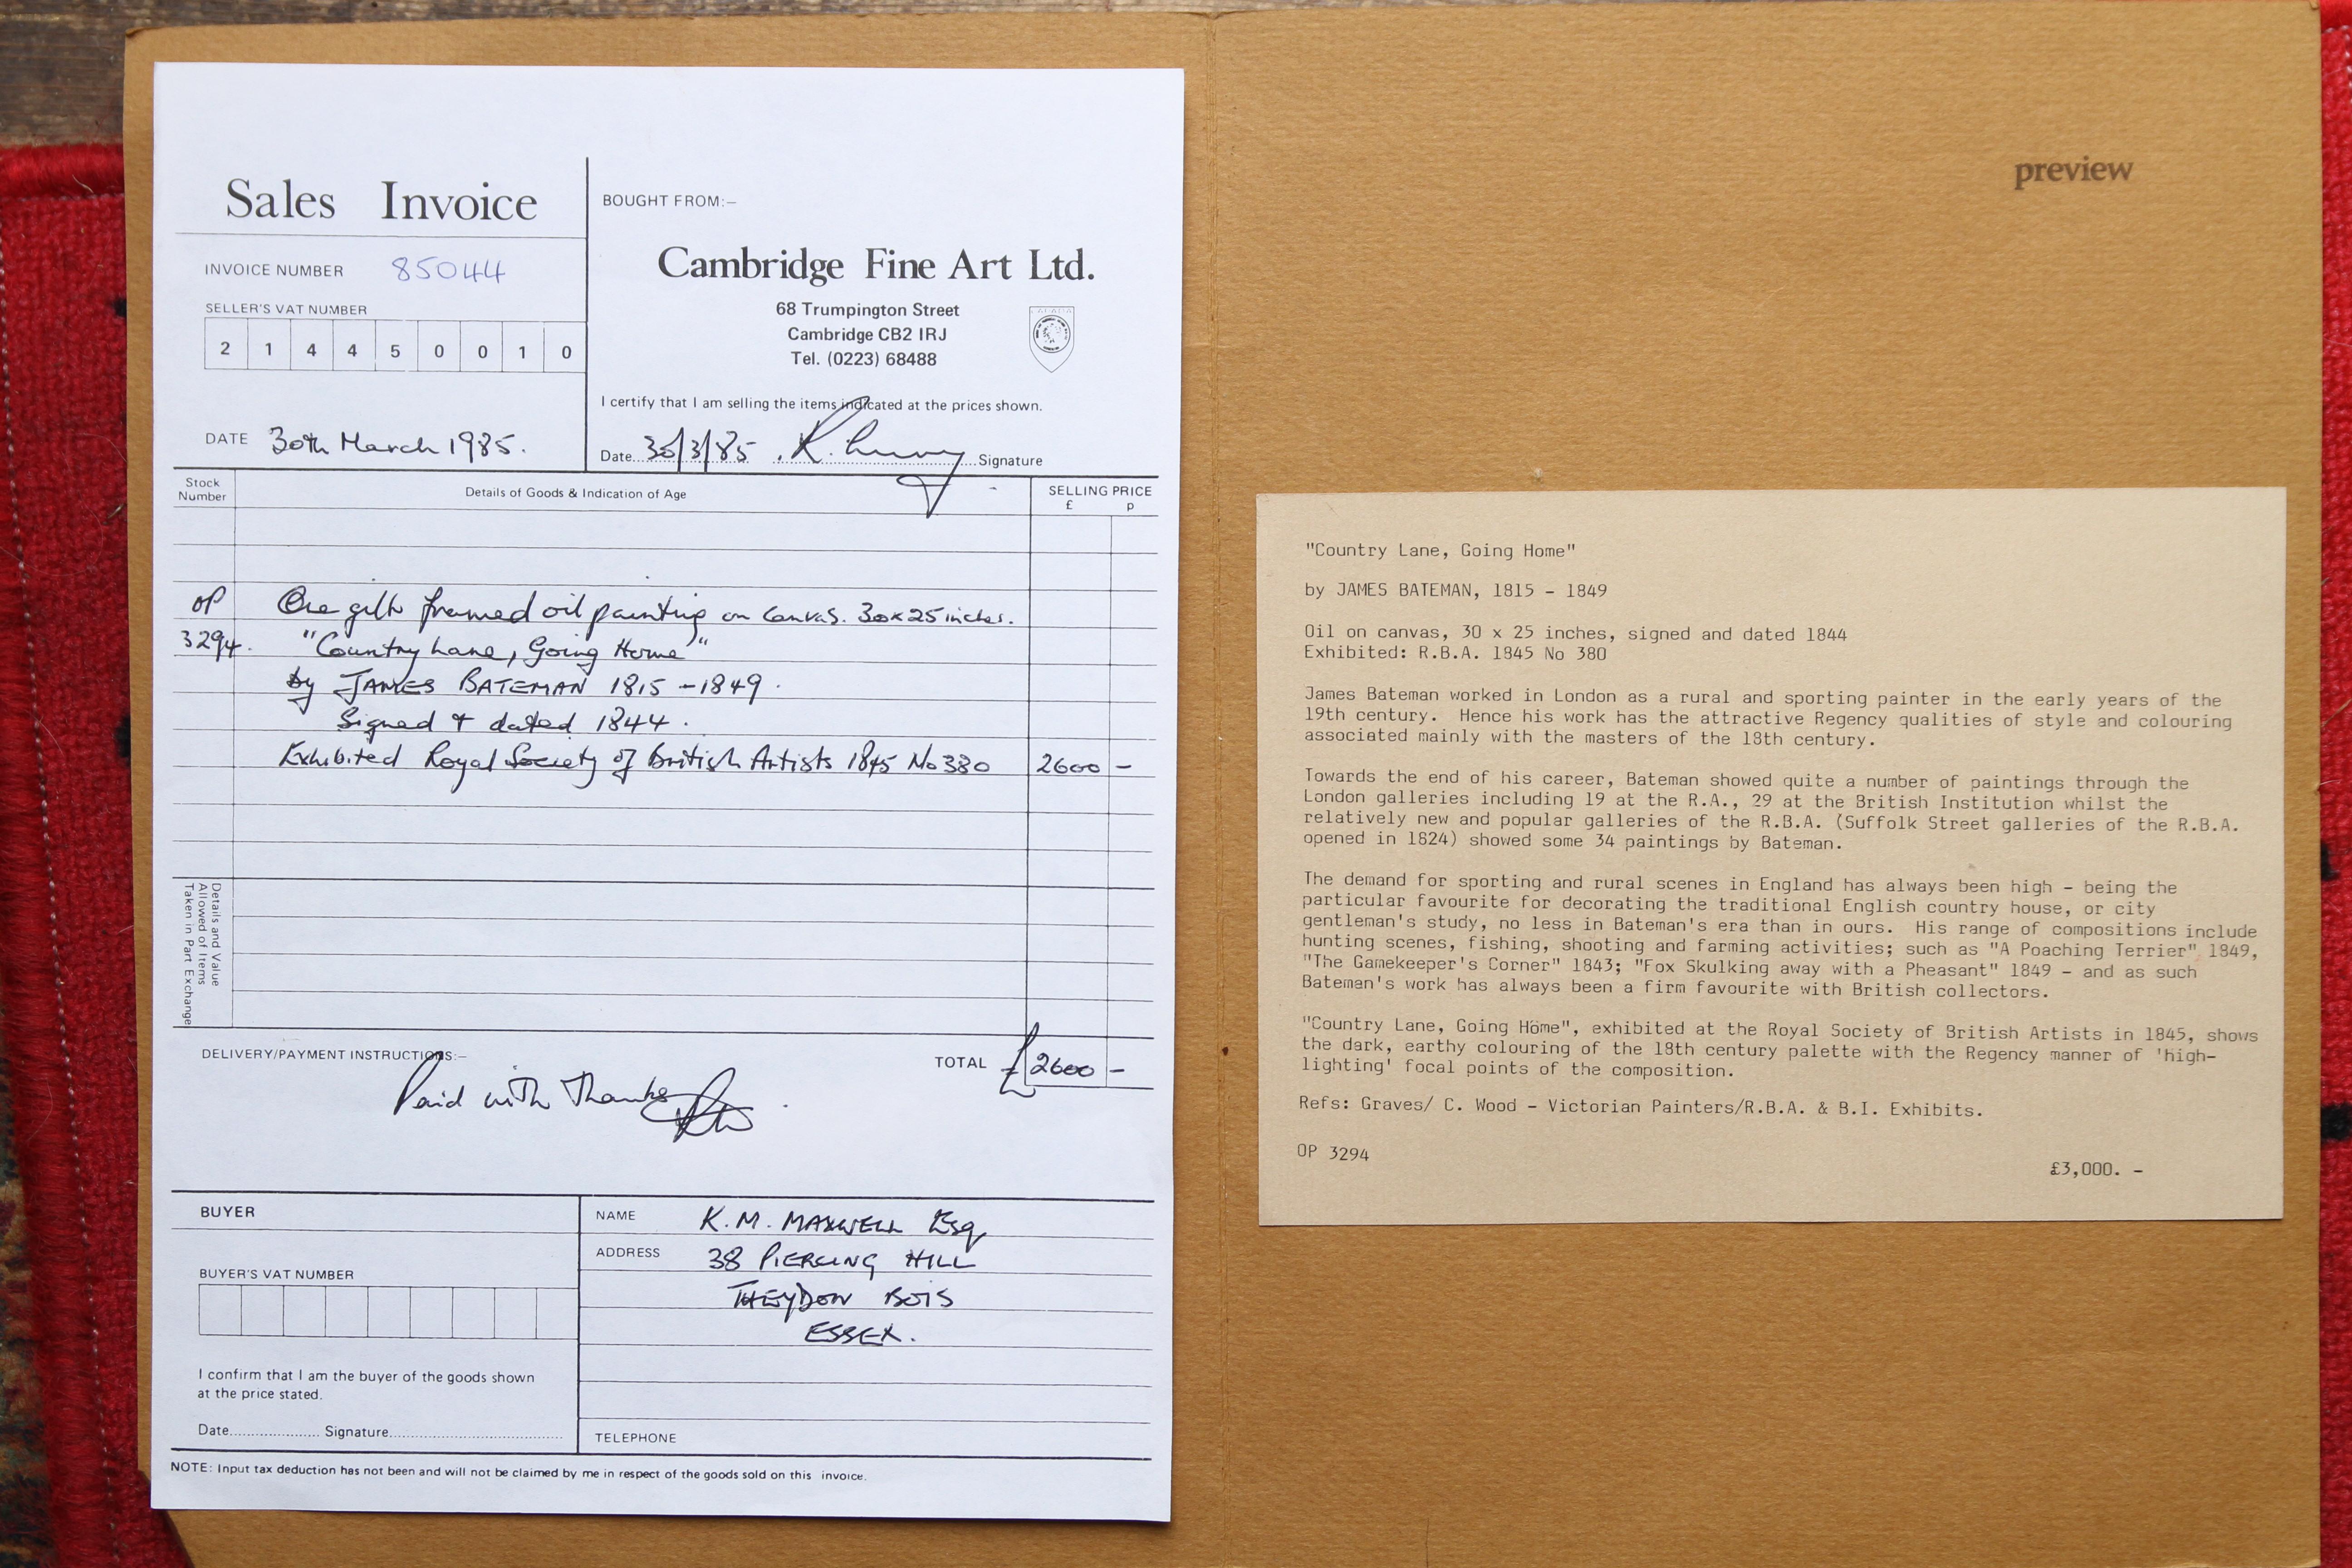 Sales Invoice
INVOICE NUMBER 85044
SELLER'S VAT NUMBER
2 1 4 4 5 0 0 1 0
DATE 30th March 1985.
BOUGHT FROM:–
Cambridge Fine Art Ltd.
68 Trumpington Street
Cambridge CB2 IRJ
Tel. (0223) 68488
I certify that I am selling the items indicated at the prices shown.
Date 30/3/85 Signature
Stock Number
Details of Goods & Indication of Age
SELLING PRICE
£ p
OP One gilt framed oil painting on canvas. 30x25 inches.
3294. "Country Lane, Going Home"
by JAMES BATEMAN 1815 – 1849.
Signed + dated 1844.
Exhibited Royal Society of British Artists 1845 No 380 2600 –
Details and Value
Allowed of Items
Taken in Part Exchange
DELIVERY/PAYMENT INSTRUCTIONS:–
TOTAL £2600 –
Paid with Thanks
BUYER
BUYER'S VAT NUMBER
I confirm that I am the buyer of the goods shown
at the price stated.
Date.................... Signature.......................................
NAME K.M. MAXWELL Esq
ADDRESS 38 PIERCING HILL
THEYDON BOIS
ESSEX.
TELEPHONE
NOTE: Input tax deduction has not been and will not be claimed by me in respect of the goods sold on this invoice.
preview
"Country Lane, Going Home"
by JAMES BATEMAN, 1815 – 1849
Oil on canvas, 30 x 25 inches, signed and dated 1844
Exhibited: R.B.A. 1845 No 380
James Bateman worked in London as a rural and sporting painter in the early years of the
19th century. Hence his work has the attractive Regency qualities of style and colouring
associated mainly with the masters of the 18th century.
Towards the end of his career, Bateman showed quite a number of paintings through the
London galleries including 19 at the R.A., 29 at the British Institution whilst the
relatively new and popular galleries of the R.B.A. (Suffolk Street galleries of the R.B.A.
opened in 1824) showed some 34 paintings by Bateman.
The demand for sporting and rural scenes in England has always been high – being the
particular favourite for decorating the traditional English country house, or city
gentleman's study, no less in Bateman's era than in ours. His range of compositions include
hunting scenes, fishing, shooting and farming activities; such as "A Poaching Terrier", 1849,
"The Gamekeeper's Corner" 1843; "Fox Skulking away with a Pheasant" 1849 – and as such
Bateman's work has always been a firm favourite with British collectors.
"Country Lane, Going Home", exhibited at the Royal Society of British Artists in 1845, shows
the dark, earthy colouring of the 18th century palette with the Regency manner of 'high–
lighting' focal points of the composition.
Refs: Graves/ C. Wood – Victorian Painters/R.B.A. & B.I. Exhibits.
OP 3294
£3,000. –